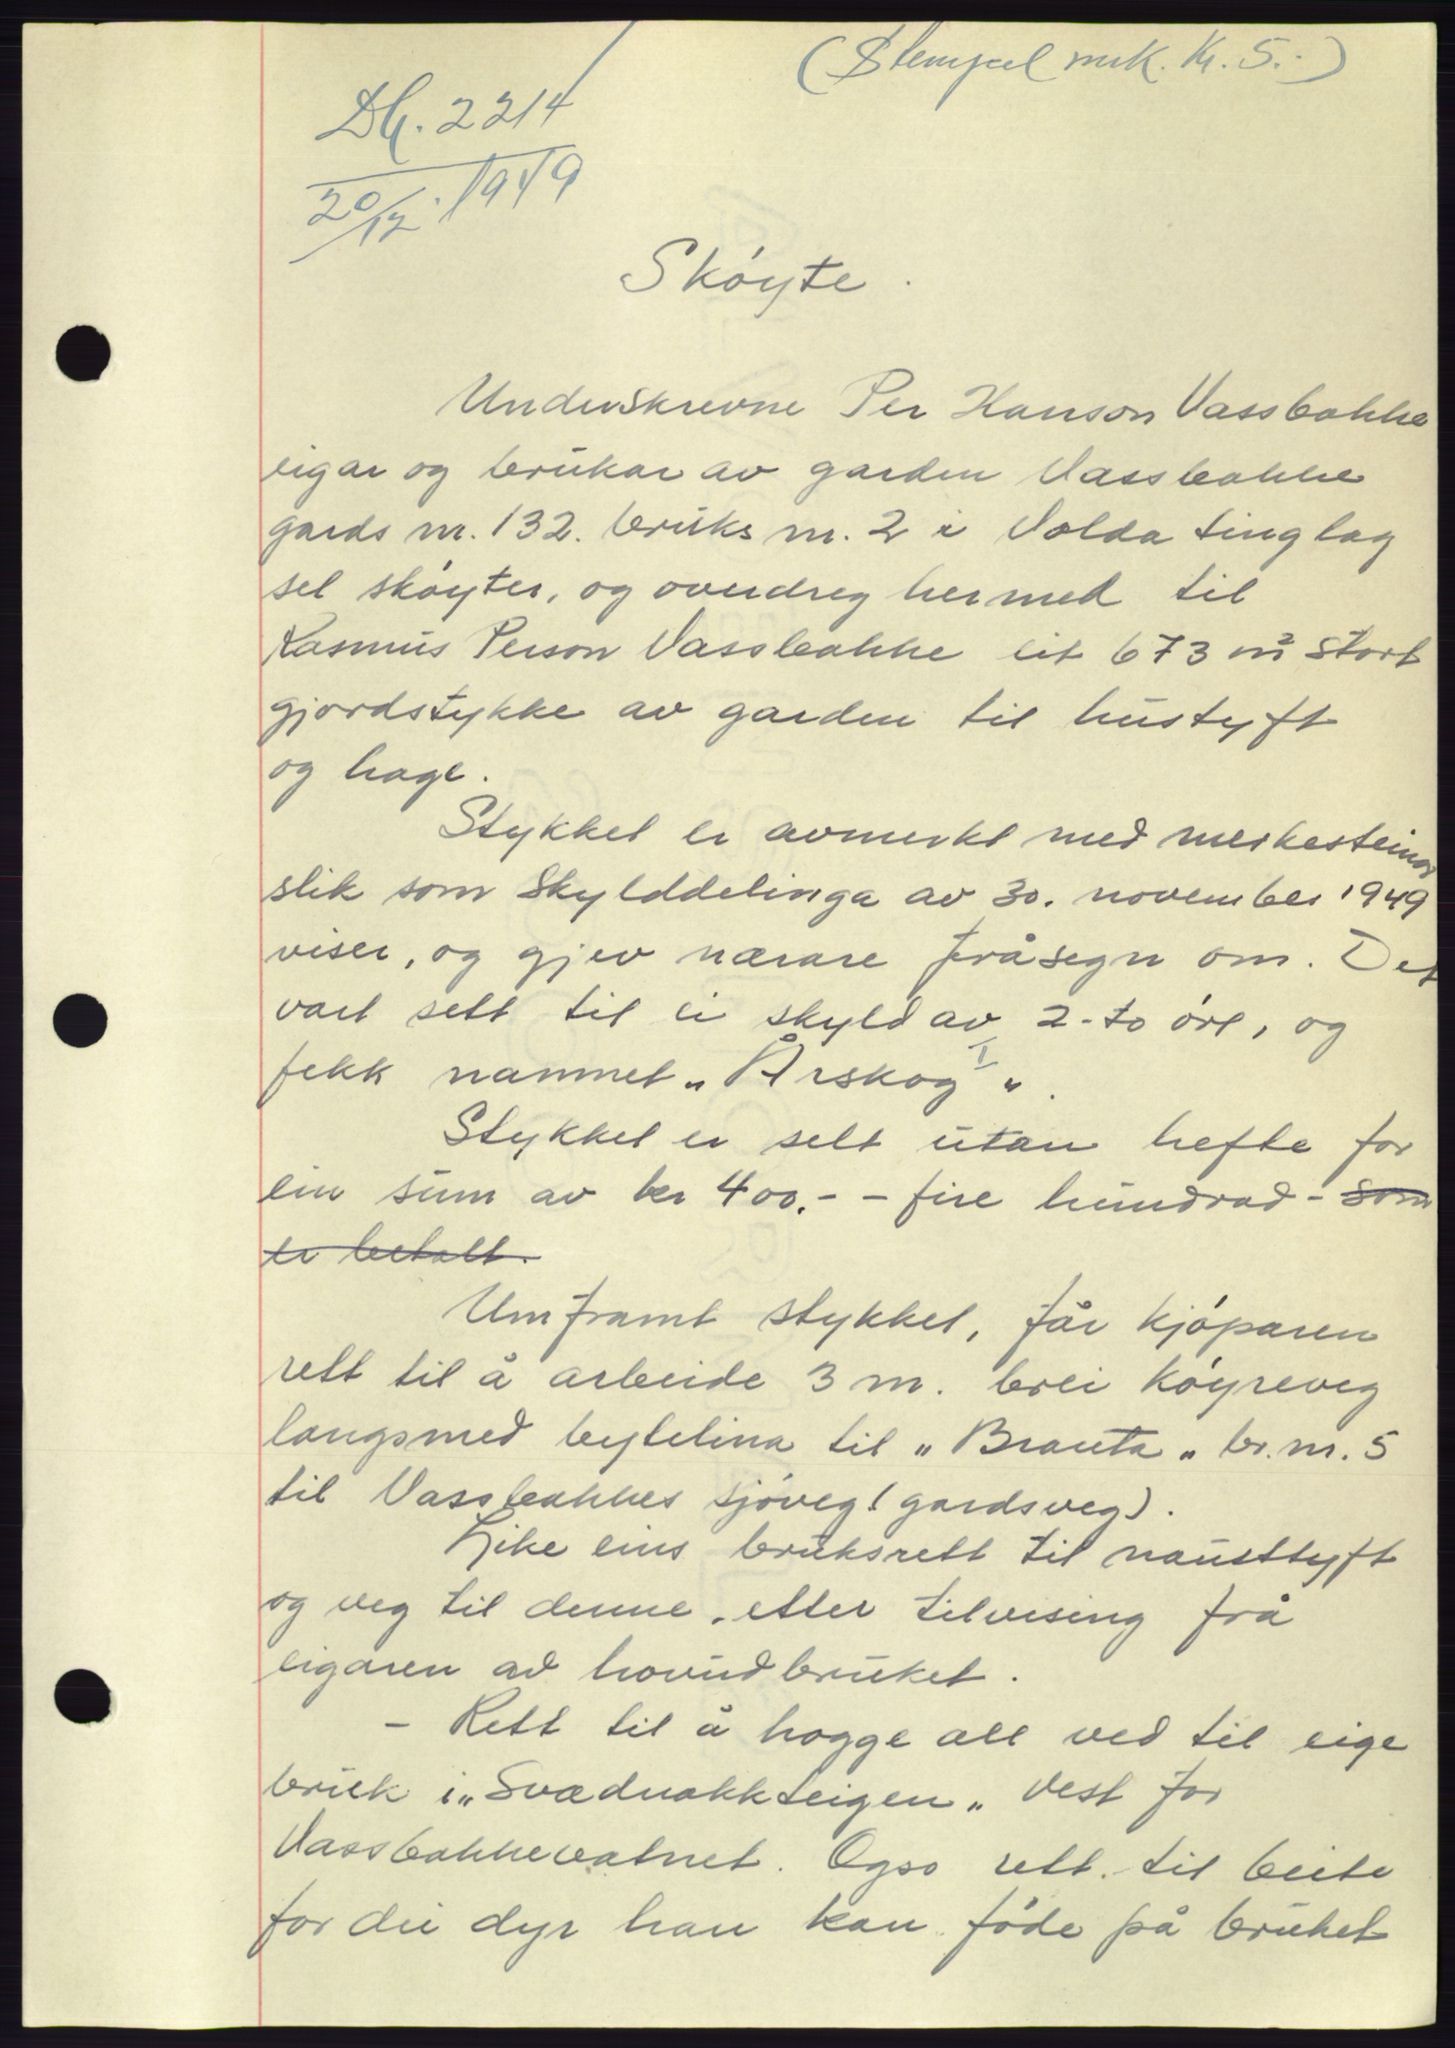 (Stempel mrk. Kr. 5.-)
Db. 2214
20/12. 1949
Skøyte.
Underskrevne Per Hanson Vassbakke
eigar og brukar av garden Vassbakke
gards nr. 132. bruks nr. 2 i Volda tinglag
sel skøyter, og overdreg hermed til
Rasmus Person Vassbakke eit 673 m² stort
gjordstykke av garden til hustyft
og hage.
Stykket er avmerkt med merkesteinar
slik som Skylddelinga av 30. november 1949
viser, og gjev nærare fråsegn om. Det
vart sett til ei skyld av 2-to øre, og
fekk namnet „Årskog I„.
Stykket er selt utan hefte for
ein sum av kr 400.- - fire hundrad - ~~som~~
~~er betalt.~~
Umframt stykket, får kjøparen
rett til å arbeide 3 m. brei køyreveg
langsmed bytelina til „Brauta„ br. nr. 5
til Vassbakkes sjøveg (gardsveg).
Like eins bruksrett til nausttyft
og veg til denne, etter tilvising frå
eigaren av hovudbruket.
- Rett til å hogge all ved til eige
bruk i „Svædnakkteigen„ vest for
Vassbakkevatnet. Ogso rett til beite
for dei dyr han kan føde på bruket